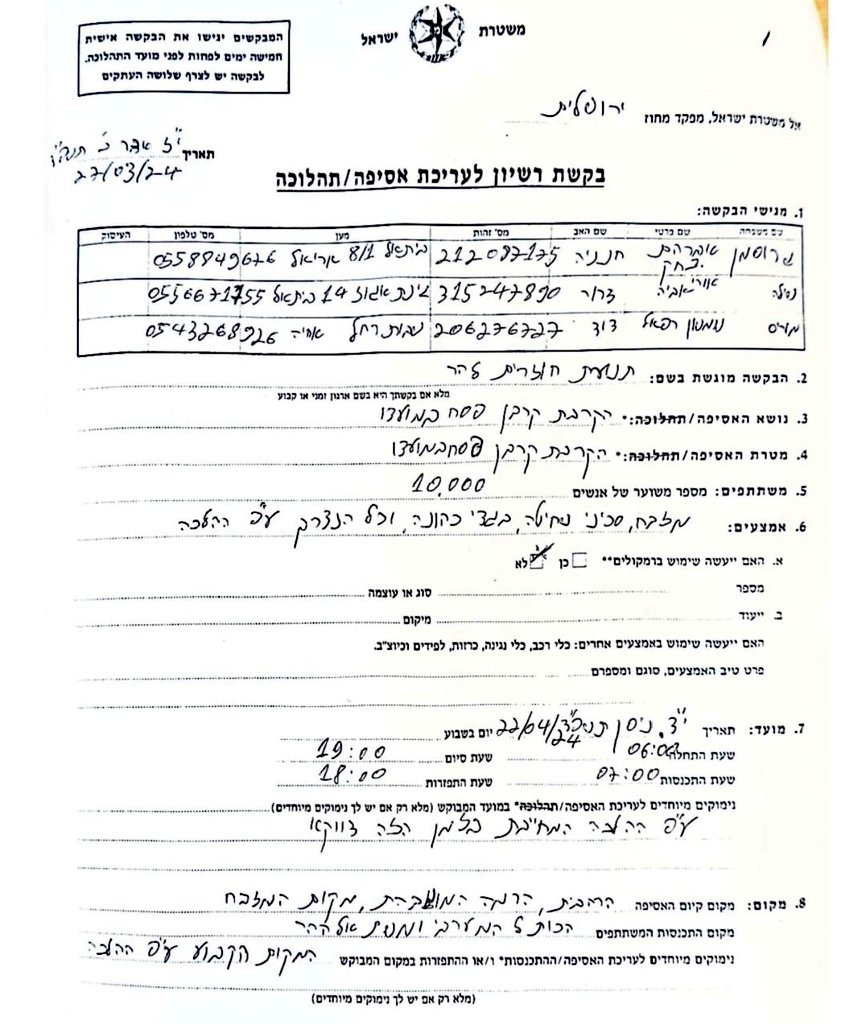 המבקשים יגישו את הבקשה אישית
חמישה ימים לפחות לפני מועד התהלוכה.
לבקשה יש לצרף שלושה העתקים
משטרת ישראל
1
אל משטרת ישראל, מפקד מחוז ירושלים
תאריך י"ז אדר ב'
27/03/24
בקשת רשיון לעריכת אסיפה/תהלוכה
1. מגישי הבקשה:
שם משפחה שם פרטי שם האב מס' זהות מען מס' טלפון העיסוק
חנניה 212087175 8/1 אריאל 0558849676
דרור 315247890 גינת אגוז 14 בית אל 0556671755
מוריס רפאל דוד 206276727 נבות רחל 0543268926
2. הבקשה מוגשת בשם: תנועת חוזרים להר
מלא אם בקשתך היא בשם ארגון זמני או קבוע
3. נושא האסיפה/תהלוכה:* הקרבת קרבן פסח במועדו
4. מטרת האסיפה/תהלוכה:* הקרבת קרבן פסח במועדו
5. משתתפים: מספר משוער של אנשים 10,000
6. אמצעים: מזבח, סכיני שחיטה, בגדי כהונה, וכל הנצרך ע"פ ההלכה
א. האם ייעשה שימוש ברמקולים** כן לא
מספר סוג או עוצמה
ב. ייעוד מיקום
האם ייעשה שימוש באמצעים אחרים: כלי רכב, כלי נגינה, כרזות, לפידים וכיוצ"ב.
פרט טיב האמצעים, סוגם ומספרם
7. מועד: תאריך י"ד ניסן תשפ"ד/22/04/24 יום בשבוע
שעת התחלה 06:00 שעת סיום 19:00
שעת התכנסות 07:00 שעת התפזרות 18:00
נימוקים מיוחדים לעריכת האסיפה/תהלוכה* במועד המבוקש (מלא רק אם יש לך נימוקים מיוחדים)
ע"פ ההלכה המחייבת בזמן הזה דווקא
8. מקום: מקום קיום האסיפה הר הבית, הרמה המוגבהת, מקום המזבח
מקום התכנסות המשתתפים הכותל המערבי ומשם אל ההר
נימוקים מיוחדים לעריכת האסיפה/ההתכנסות* ו/או ההתפזרות במקום המבוקש המקום הקבוע ע"פ ההלכה
(מלא רק אם יש לך נימוקים מיוחדים)